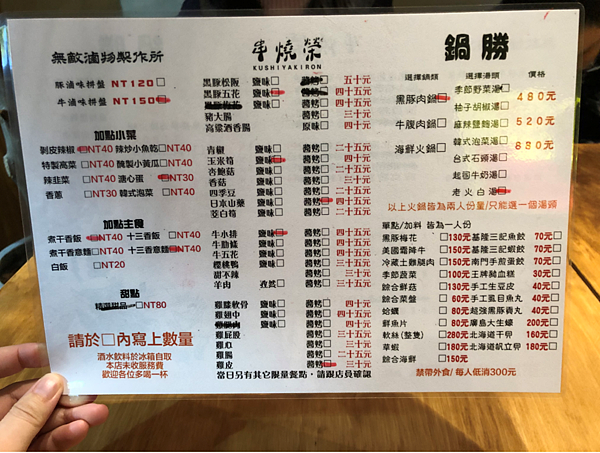 無敵滷物製作所
豚滷味拼盤 NT120□
牛滷味拼盤 NT150
加點小菜
剝皮辣椒 NT40 辣炒小魚乾□NT40
特製高菜□NT40 醃製小黃瓜□NT40
辣韭菜□NT40 溏心蛋 NT30
香蔥□NT30 韓式泡菜□NT40
加點主食
煮干香飯 NT40 十三香飯□NT40
煮干香意麵□NT40 十三香意麵 NT40
白飯□NT20
甜點
精選甜品 NT80
請於□內寫上數量
酒水飲料於冰箱自取
本店未收服務費
歡迎各位多喝一杯
串燒榮
KUSHIYAKIRON
黑豚松阪 鹽味□ 五十元
黑豚五花 鹽味 醬烤□ 四十五元
四十五元
豬大腸 醬烤□ 四十元
高粱酒香腸 原味□ 四十元
青椒 鹽味□ 醬烤□ 二十五元
玉米筍 鹽味 醬烤□ 四十元
杏鮑菇 鹽味□ 醬烤□ 二十五元
香菇 鹽味□ 醬烤□ 三十元
四季豆 鹽味□ 醬烤□ 二十五元
日本山藥 鹽味□ 醬烤 四十五元
茭白筍 鹽味□ 醬烤□ 二十五元
牛小排 鹽味 醬烤□ 四十元
牛肋條 鹽味□ 醬烤□ 四十元
牛五花 鹽味□ 醬烤□ 四十元
櫻桃鴨 鹽味□ 醬烤□ 三十元
甜不辣 醬烤□ 三十元
羊肉 孜然□ 醬烤□ 三十元
雞腿軟骨 鹽味□ 醬烤□ 四十元
雞翅中 鹽味□ 醬烤□ 四十元
鹽味□ 醬烤□ 四十元
雞屁股 醬烤□ 三十元
雞心 醬烤□ 三十元
雞腸 醬烤□ 二十元
雞皮 醬烤 三十元
當日另有其它限量餐點，請跟店員確認
鍋勝
選擇鍋類 選擇湯頭 價格
黑豚肉鍋 480元
牛腹肉鍋□ 520元
海鮮火鍋□ 880元
季節野菜湯□
柚子胡椒湯□
麻辣豐麵湯□
韓式泡菜湯□
台式石頭湯□
起司牛奶湯□
老火白湯
以上火鍋皆為兩人份量/只能選一個湯頭
單點/加料 皆為一人份
黑豚梅花□130元 基隆三記魚餃 70元□
美國霜降牛□150元 基隆三記蝦餃 70元□
冷藏土雞腿肉□150元 南門手煎蛋餃 70元□
季節蔬菜□100元 王牌豬血糕 30元□
綜合鮮菇□60元 手工生豆皮 40元□
綜合菜盤□60元 手工虱目魚丸 40元□
蛤蠣□80元 超強黑豚貢丸 40元□
鮮魚片□80元 廣島大生蠔 200元□
軟絲(整隻)□280元 北海道干貝 160元□
草蝦□180元 北海道帆立卵 180元□
綜合海鮮□150元
禁帶外食/每人低消300元